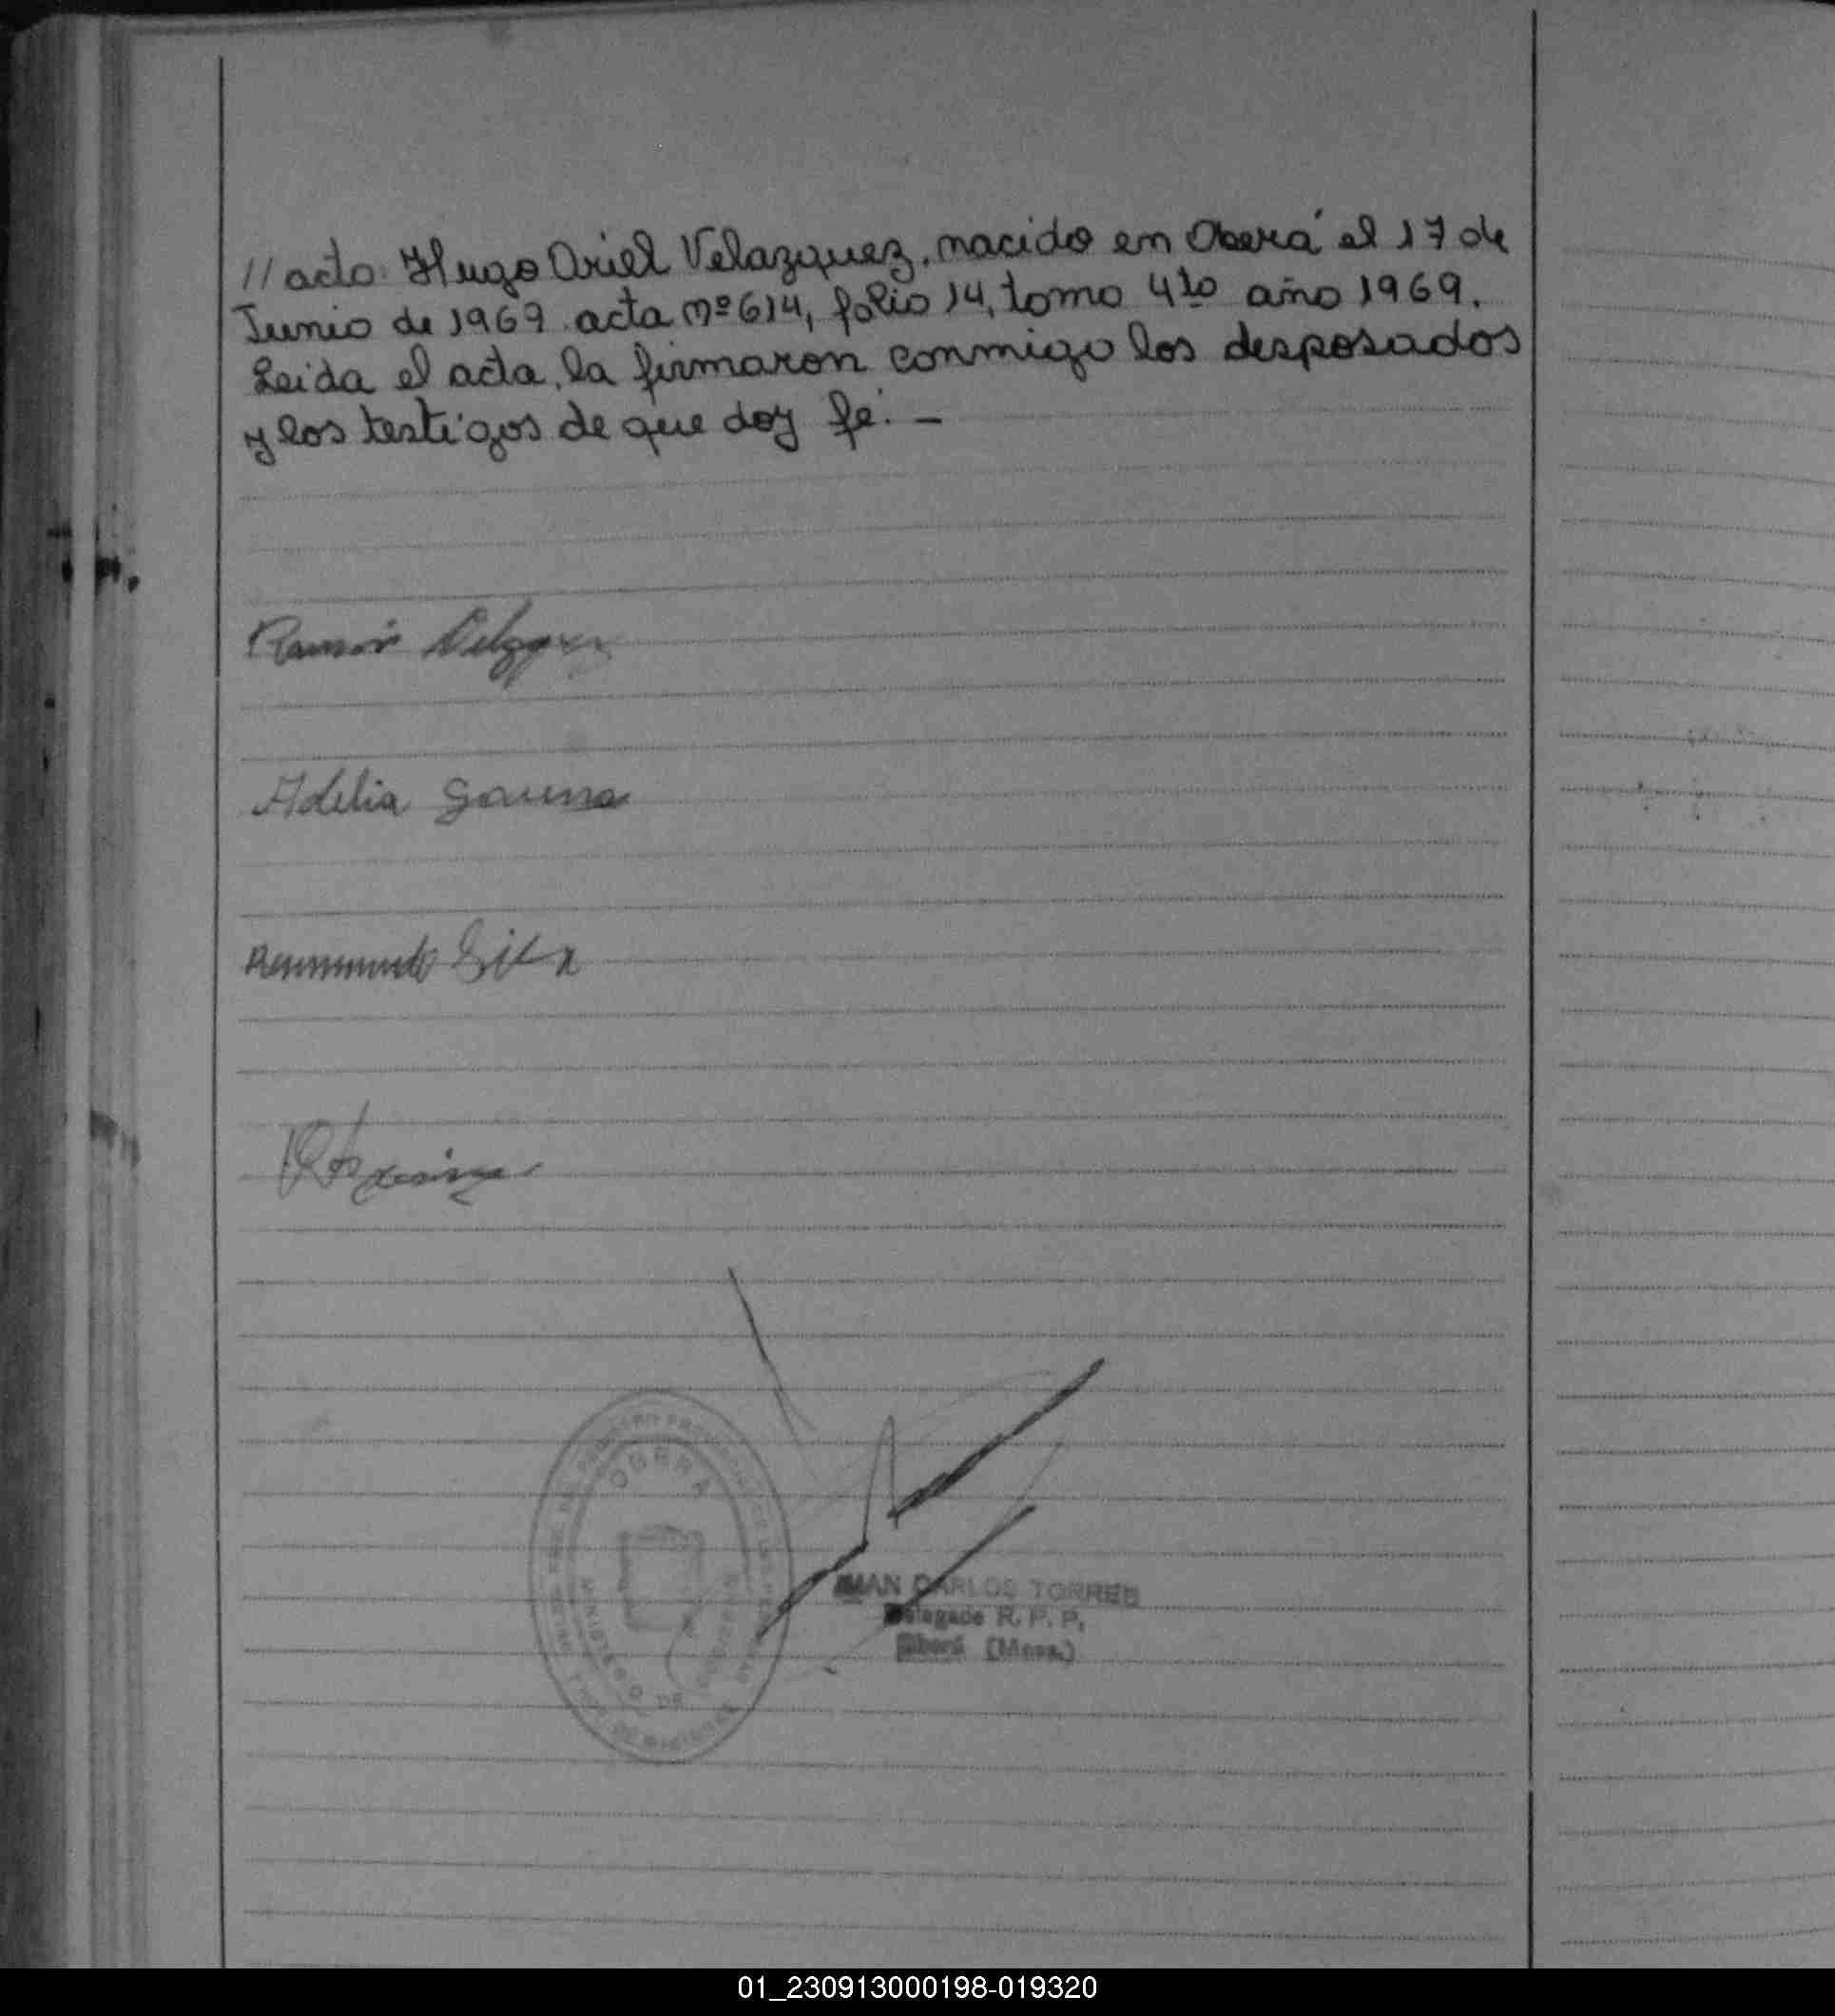 // acto: Hugo Ariel Velazquez, nacido en Oberá el 17 de
Junio de 1969 acta nº 614, folio 14, tomo 4to año 1969.
Leida el acta, la firmaron conmigo los desposados
y los testigos de que doy fé. –
Ramón
Adelia Gauna
OBERÁ
MINISTERIO DE
JUAN CARLOS TORRES
Delegado R. P. P.
Oberá (Mnes.)
01_230913000198-019320